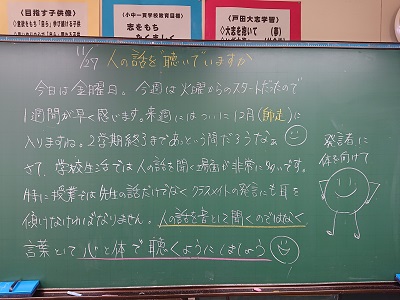 目指す子供像
小中一貫学校教育目標
志をもち
たくましく
戸田大志学習
◇大志を抱いて
11/27 人の話を聴いていますか
今日は金曜日。今週は火曜からのスタートだったので
1週間が早く感じます。来週にはついに12月(師走)に
入りますね。2学期終了まであっという間だろうなぁ
さて、学校生活では人の話を聞く場面が非常に多いです。
特に授業では先生の話だけでなくクラスメイトの発言にも耳を
傾けなければなりません。人の話を音として聞くのではなく
言葉として心と体で聴くようにしましょう
発言者に
体を向けて